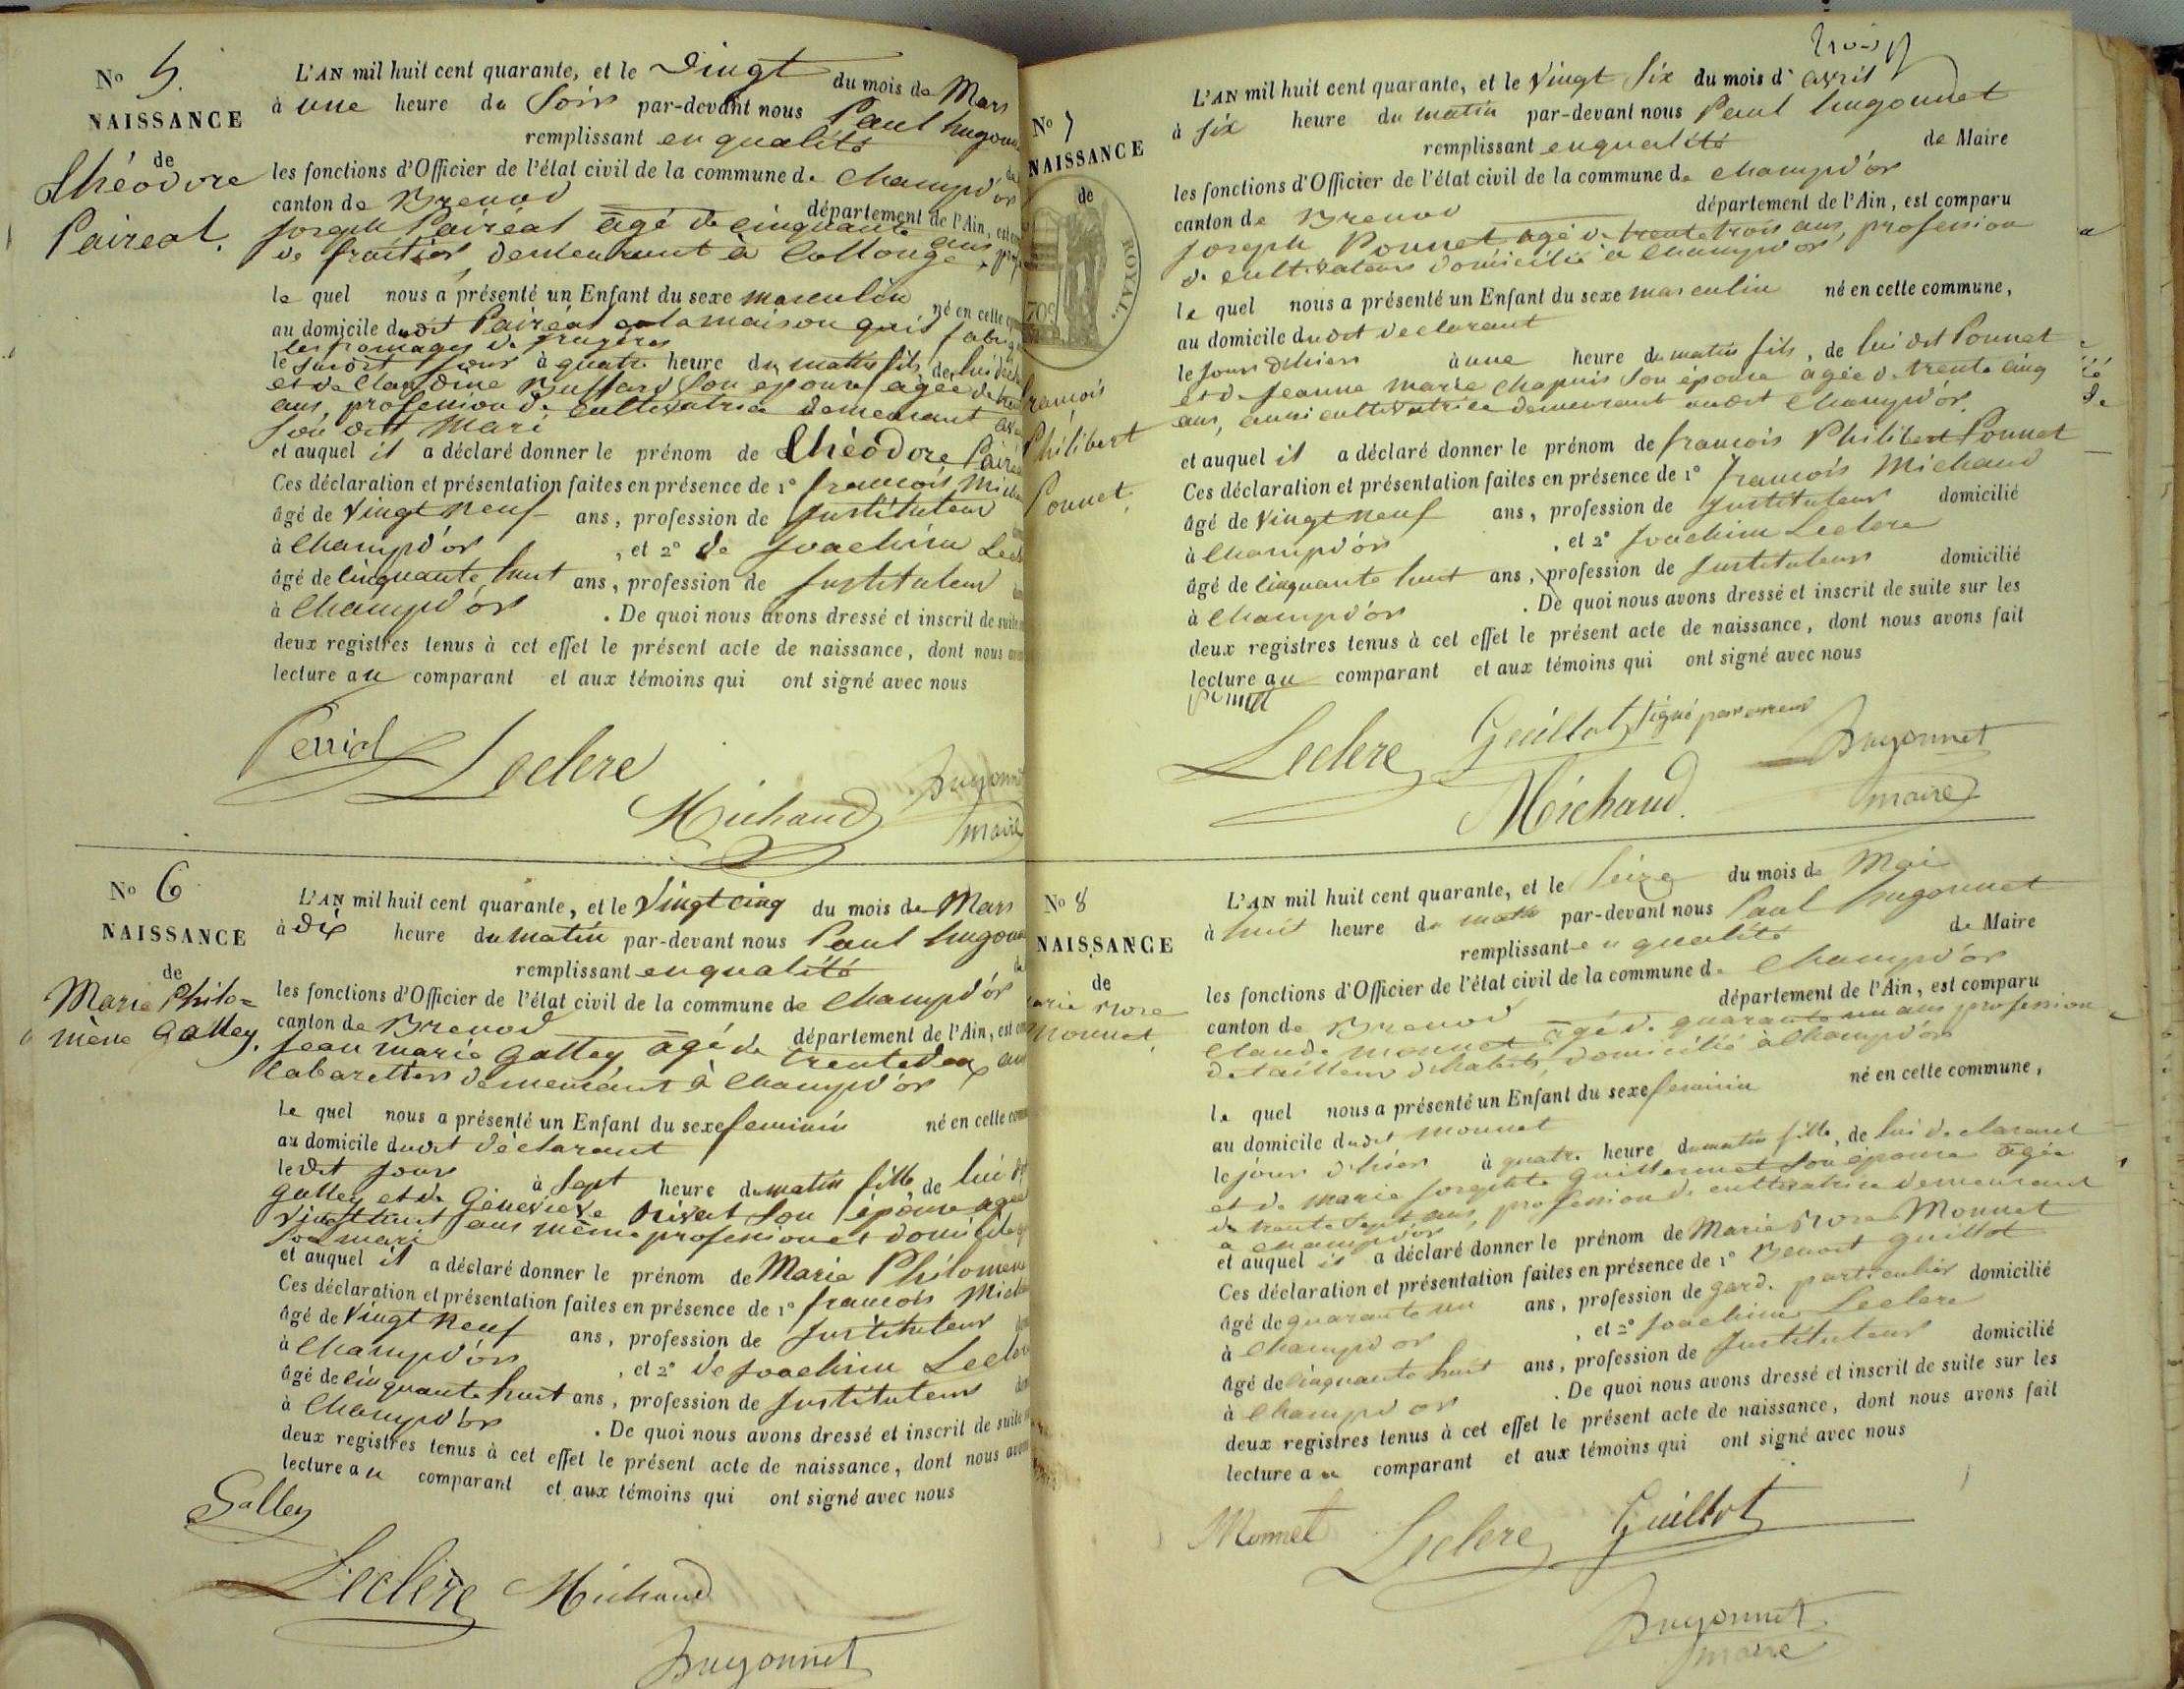 No 5.
NAISSANCE
de
Théodore
Pairéal.
L'AN mil huit cent quarante, et le Vingt du mois de Mars
à une heure du Soir par-devant nous Paul hugonn
remplissant en qualité
les fonctions d'Officier de l'état civil de la commune de Champd'or
canton de Brenod département de l'Ain, est
Joseph Pairéal âgé de cinquante ans,
de fruitier, demeurant à Collonge,
le quel nous a présenté un Enfant du sexe masculin né en cette
au domicile dudit Pairéal a la maison
les fromages de
le susdit jour à quatre heure du matin fils, de lui
et de Claudine Buffard son epouse âgée de
ans, profession de cultivatrice demeurant
Son dit mari
et auquel il a déclaré donner le prénom de Théodore Pairé
Ces déclaration et présentation faites en présence de 1° françois Micha
âgé de Vingt neuf ans, profession de Instituteur
à Champd'or , et 2° de Joachim Lecle
âgé de Cinquante huit ans, profession de Instituteur
à Champd'or . De quoi nous avons dressé et inscrit de suite
deux registres tenus à cet effet le présent acte de naissance, dont nous
lecture au comparant et aux témoins qui ont signé avec nous
Leclere
Michaud
hugonnet
maire
No 6
NAISSANCE
de
Marie Philo=
mène Galley.
L'AN mil huit cent quarante, et le Vingt cinq du mois de Mars
à dix heure du matin par-devant nous Paul hugonn
remplissant en qualité
les fonctions d'Officier de l'état civil de la commune de Champd'or
canton de Brenod département de l'Ain, est
Jean marie Galley âgé de trentedeux ans
Cabarettier demeurant à Champd'or
le quel nous a présenté un Enfant du sexe feminin né en cette
au domicile dudit déclarant
le dit jour à Sept heure du matin fille, de lui
Galley et de Genevieve Nivat son épouse agée
vingt huit ans même profession et domicile
son mari
et auquel il a déclaré donner le prénom de Marie Philomene
Ces déclaration et présentation faites en présence de 1° françois Micha
âgé de Vingt neuf ans, profession de Instituteur
à Champd'or , et 2° de Joachim Lecler
âgé de Cinquante huit ans, profession de Instituteur
à Champd'or . De quoi nous avons dressé et inscrit de suite
deux registres tenus à cet effet le présent acte de naissance, dont nous avons
lecture au comparant et aux témoins qui ont signé avec nous
Galley
Leclere Michaud
hugonnet
trois
No 7
NAISSANCE
de
ROYAL.
françois
Philibert
Ponnet.
L'AN mil huit cent quarante, et le Vingt Six du mois d' avril
à Six heure du matin par-devant nous Paul hugonnet
remplissant en qualité de Maire
les fonctions d'Officier de l'état civil de la commune de Champd'or
canton de Brenod département de l'Ain, est comparu
Joseph Ponnet agé de trente trois ans, profession
de cultivateur domicilié à Champd'or
le quel nous a présenté un Enfant du sexe masculin né en cette commune,
au domicile dudit déclarant
le jour d'hier à une heure du matin fils, de lui dit Ponnet
et de Jeanne marie Chapuis son épouse agée de trente cinq
ans, aussi cultivatrice demeurant audit Champd'or.
et auquel il a déclaré donner le prénom de françois Philibert Ponnet
Ces déclaration et présentation faites en présence de 1° françois Michaud
âgé de Vingt neuf ans, profession de Instituteur domicilié
à Champd'or , et 2° Joachim Leclere
âgé de Cinquante huit ans, profession de Instituteur domicilié
à Champd'or . De quoi nous avons dressé et inscrit de suite sur les
deux registres tenus à cet effet le présent acte de naissance, dont nous avons fait
lecture au comparant et aux témoins qui ont signé avec nous
Ponnet
Leclere Guillot signé par erreur hugonnet
Michaud. maire
No 8
NAISSANCE
de
arie Rose
Monnet.
L'AN mil huit cent quarante, et le Seize du mois de Mai
à huit heure du matin par-devant nous Paul hugonnet
remplissant en qualité de Maire
les fonctions d'Officier de l'état civil de la commune de Champd'or
canton de Brenod département de l'Ain, est comparu
Claude Monnet âgé de quarante un ans profession
de tailleur d'habits, domicilié à Champd'or
le quel nous a présenté un Enfant du sexe feminin né en cette commune,
au domicile dudit Monnet
le jour d'hier à quatre heure du matin fille, de lui declarant
et de Marie Josephte Guillermet son épouse agée
de trente sept ans, profession de cultivatrice demeurant
a Champd'or
et auquel il a déclaré donner le prénom de Marie Rose Monnet
Ces déclaration et présentation faites en présence de 1° Benoit Guillot
âgé de quarante un ans, profession de garde particulier domicilié
à Champd'or , et 2° Joachim Leclere
âgé de Cinquante huit ans, profession de Instituteur domicilié
à Champd'or . De quoi nous avons dressé et inscrit de suite sur les
deux registres tenus à cet effet le présent acte de naissance, dont nous avons fait
lecture au comparant et aux témoins qui ont signé avec nous
Monnet Leclere Guillot
hugonnet
maire